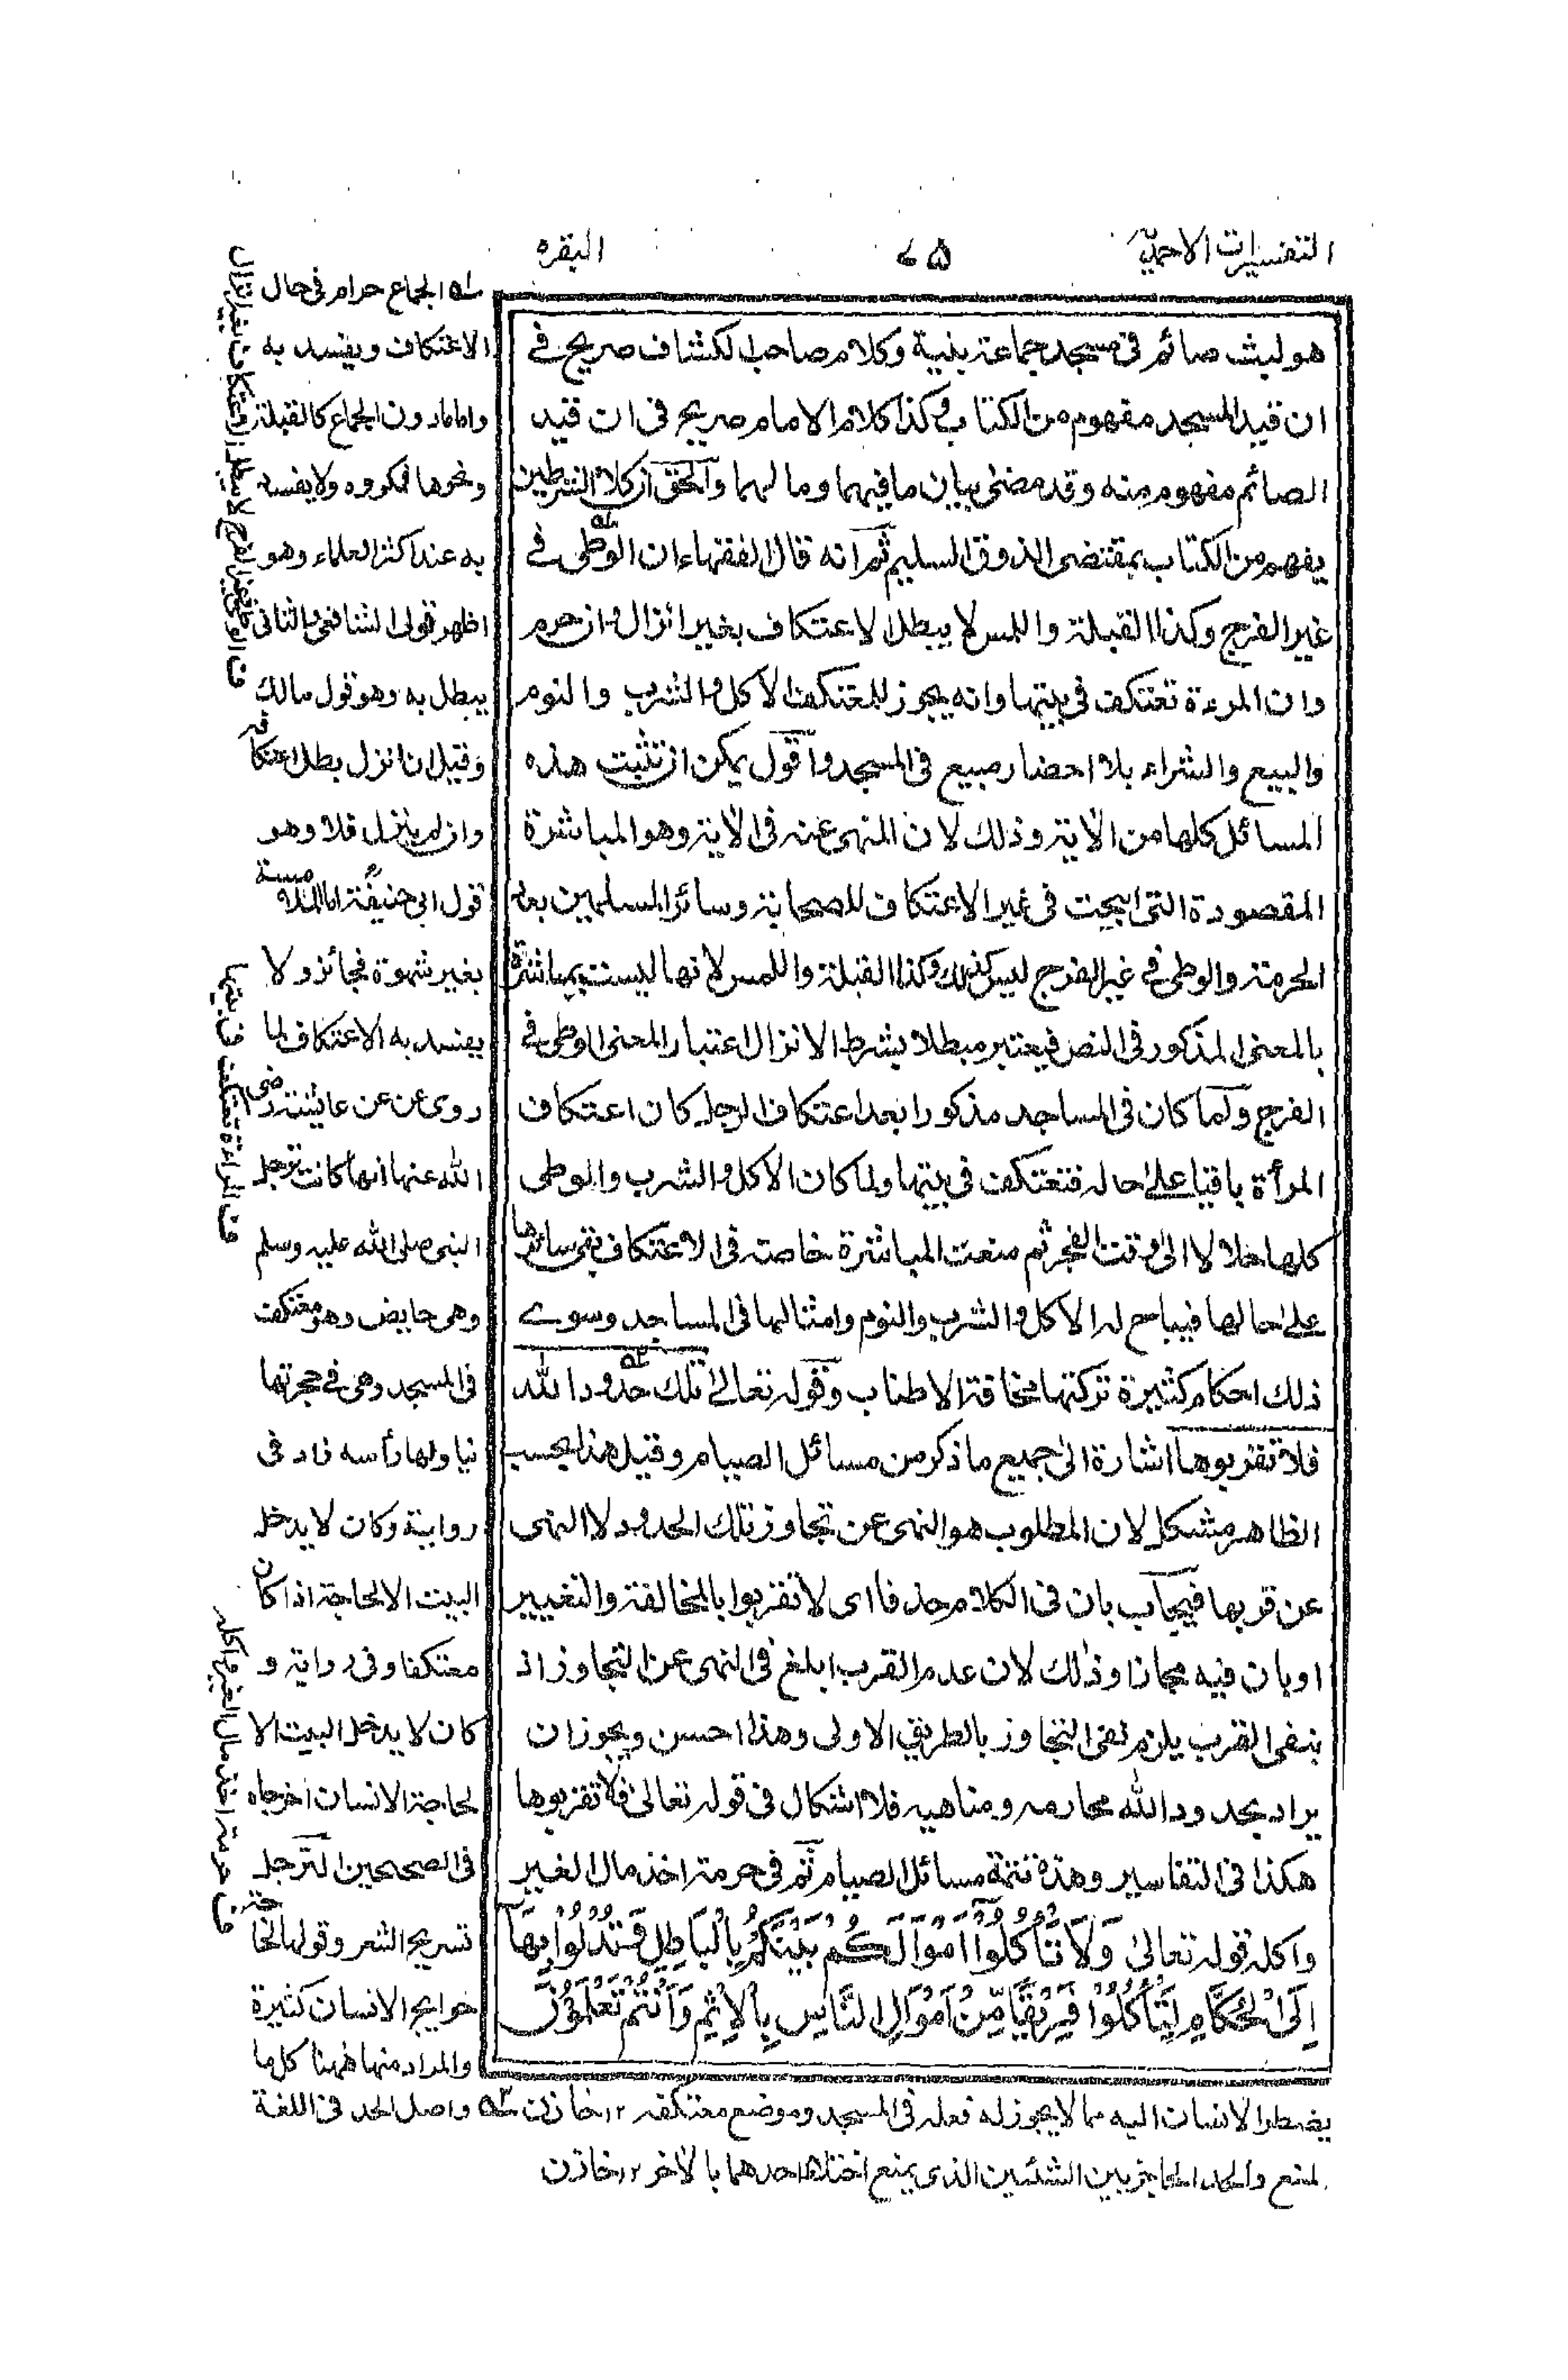 التفسيرات الاحمديّة
٧٥
البقره
هو لبث صائم فى مسجد جماعة بنية وكلام صاحب الكشاف صريح فے
ان قيد المسجد مفهوم من الكتاب وكذا كلام الامام صريح فى ان قيد
الصائم مفهوم منه وقد مضى بيان ما فيهما وما لهما والحق ان كلا الشرطين
يفهم من الكتاب بمقتضى الذوق السليم ثم انه قال الفقهاء ان الوطى فے
غير الفرج وكذا القبلة واللمس لا يبطل الاعتكاف بغير انزال وان حرم
وان المرءة تعتكف فى بيتها وانه يجوز للمعتكف الاكل والشرب والنوم
والبيع والشراء بلا احضار مبيع فى المسجد واقول يمكن ان تثبت هذه
المسائل كلها من الاية وذلك لان المنهى عنه فى الاية وهو المباشرة
المقصودة التى ابيحت فى غير الاعتكاف للصحابة وسائر المسلمين بعد
الحرمة والوطى فے غير الفرج ليس كذلك وكذا القبلة واللمس لانها ليست بمباشرة
بالمعنى المذكور فى النص فيعتبر مبطلا بشرط الانزال اعتبار المعنى الوطى فے
الفرج ولما كان فى المساجد مذكورا بعد اعتكاف الرجل كان اعتكاف
المرأة باقيا على حاله فتعتكف فى بيتها ولما كان الاكل والشرب والوطى
كلها حلالا الى وقت الفجر ثم منعت المباشرة خاصة فى الاعتكاف بقى سائرها
على حالها فيباح له الاكل والشرب والنوم وامثالها فى المساجد وسوے
ذلك احكام كثيرة تركتها مخافة الاطناب وقوله تعالى تلك حدود الله
فلا تقربوها اشارة الى جميع ما ذكر من مسائل الصيام وقيل هذا بحسب
الظاهر مشكل لان المطلوب هو النهى عن تجاوز تلك الحدود لا النهى
عن قربها فيجاب بان فى الكلام حذفا اى لا تقربوا بالمخالفة والتغيير
او بان فيه مجازا وذلك لان عدم القرب ابلغ فى النهى عن التجاوز اذ
بنفى القرب يلزم نفى التجاوز بالطريق الاولى وهذا احسن ويجوز ان
يراد بحدود الله محارمه ومناهيه فلا اشكال فى قوله تعالى فلا تقربوها
هكذا فى التفاسير وهذه تتمة مسائل الصيام ثم فى حرمة اخذ مال الغير
واكله قوله تعالى وَلَا تَأْكُلُوْا اَمْوَالَكُمْ بَيْنَكُمْ بِالْبَاطِلِ وَتُدْلُوْا بِهَا
اِلَى الْحُكَّامِ لِتَأْكُلُوْا فَرِيْقًا مِّنْ اَمْوَالِ النَّاسِ بِالْاِثْمِ وَاَنْتُمْ تَعْلَمُوْنَ
له الجماع حرام فى حال
الاعتكاف ويفسد به
واما مادون الجماع كالقبلة
ونحوها فمكروه ولا يفسد
به عند اكثر العلماء وهو
اظهر قولى الشافعى والثانى
يبطل به وهو قول مالك
وقيل ان انزل بطل اعتكافه
وان لم ينزل فلا وهو
قول ابى حنيفة اما الملامسة
بغير شهوة فجائز ولا
يفسد به الاعتكاف لما
روى عن عن عائشة رضى
الله عنها انها كانت ترجل
النبى صلى الله عليه وسلم
وهى حايض وهو معتكف
فى المسجد وهى فے حجرتها
يناولها رأسه زاد فى
رواية وكان لا يدخل
البيت الا لحاجة اذا كان
معتكفا وفى رواية و
كان لا يدخل البيت الا
لحاجة الانسان اخرجاه
فى الصحيحين الترجل
تسريح الشعر وقولها لحاجة
حوايج الانسان كثيرة
والمراد منها ههنا كل ما
يضطر الانسان اليه مما لا يجوز له فعله فى المسجد وموضع معتكفه ١٢ خازن ٢ه واصل الحد فى اللغة
المنع والحد الحاجز بين الشئين الذى يمنع اختلاط احدهما بالاخر ١٢ خازن
ف الوطى فے غير الفرج لا يبطل الاعتكاف بغير انزال
ف المراءة تعتكف فى بيتها
ف حرمة اخذ مال الغير واكله